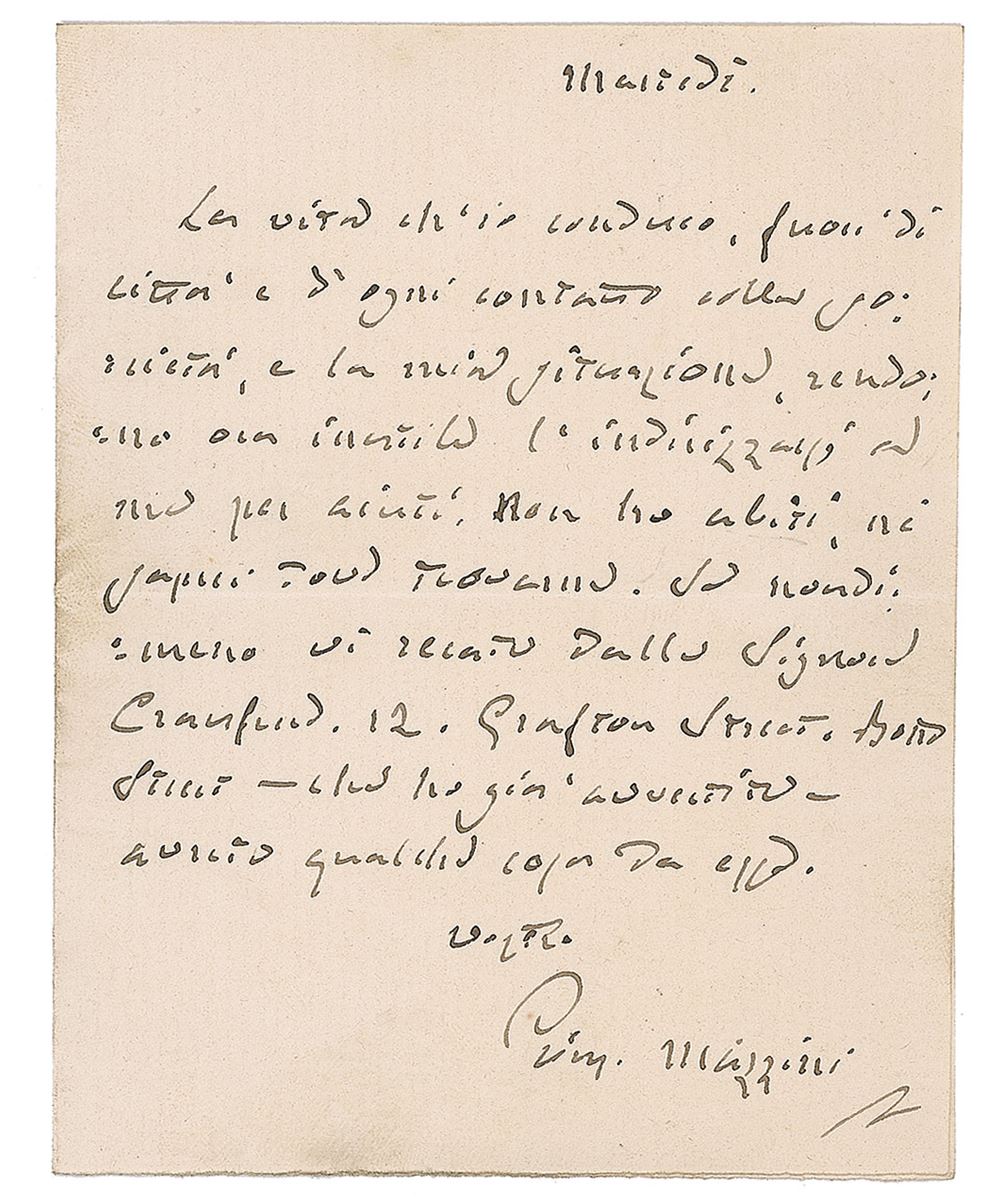 Martedì.
La vita ch'io conduco, fuori di
città e d'ogni contatto colla so:
cietà, e la mia situazione, rendo:
:no ora inutile l'indirizzarsi a
me per aiuti. Non ho abiti, nè
saprei dove trovarne. Se nondi:
:meno vi recate dalla Signora
Craufurd. 12. Grafton Street. Bond
Street — che ho già avvertita —
avrete qualche cosa da essa.
vostro
Gius. Mazzini